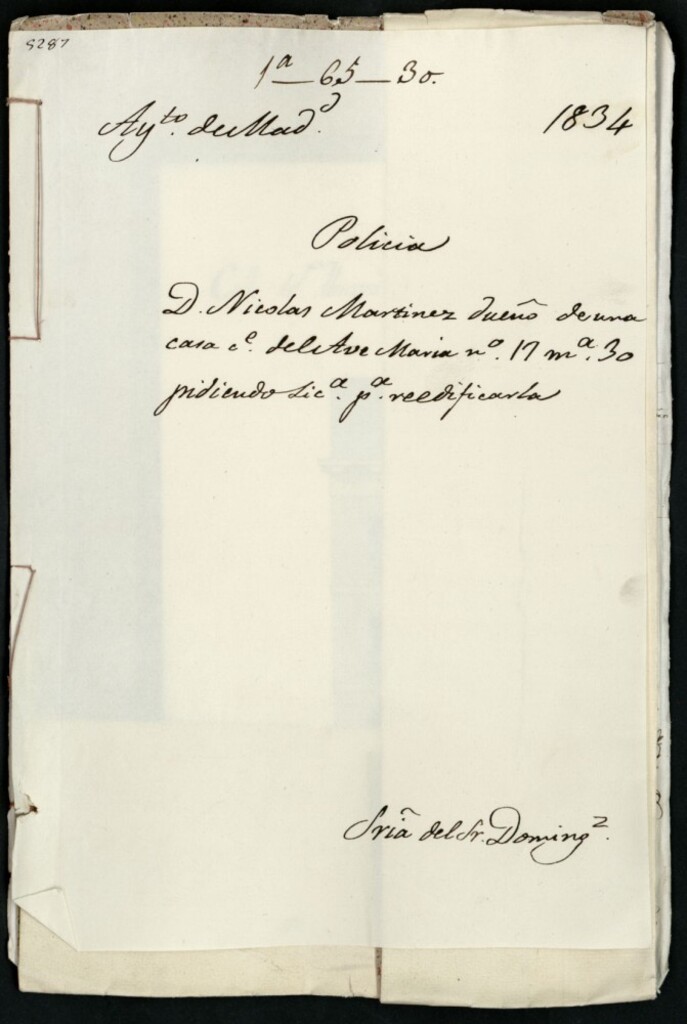 5287
1ª—65—30.
Ayto. de Madd.
1834
Policia
D. Nicolas Martinez dueño de una
casa c.e del Ave Maria nº. 17 mª. 30
pidiendo Lic.ª pª. reedificarla
Sriã del Sr. Domingz.